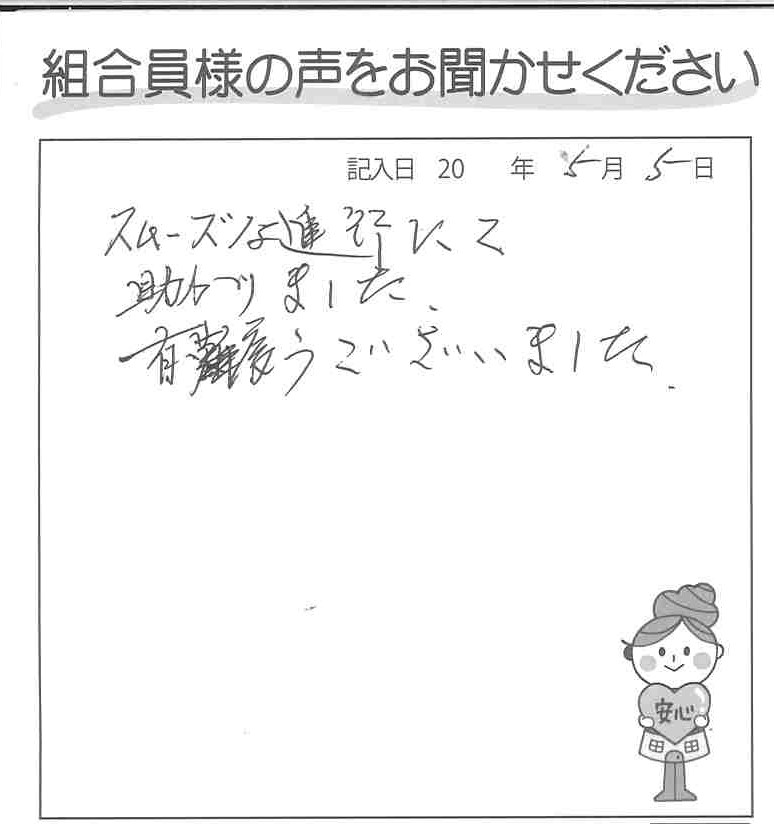 組合員様の声をお聞かせください
記入日 20 年 5月 5日
スムーズな進行にて
助かりました.
有難度うございました.
安心